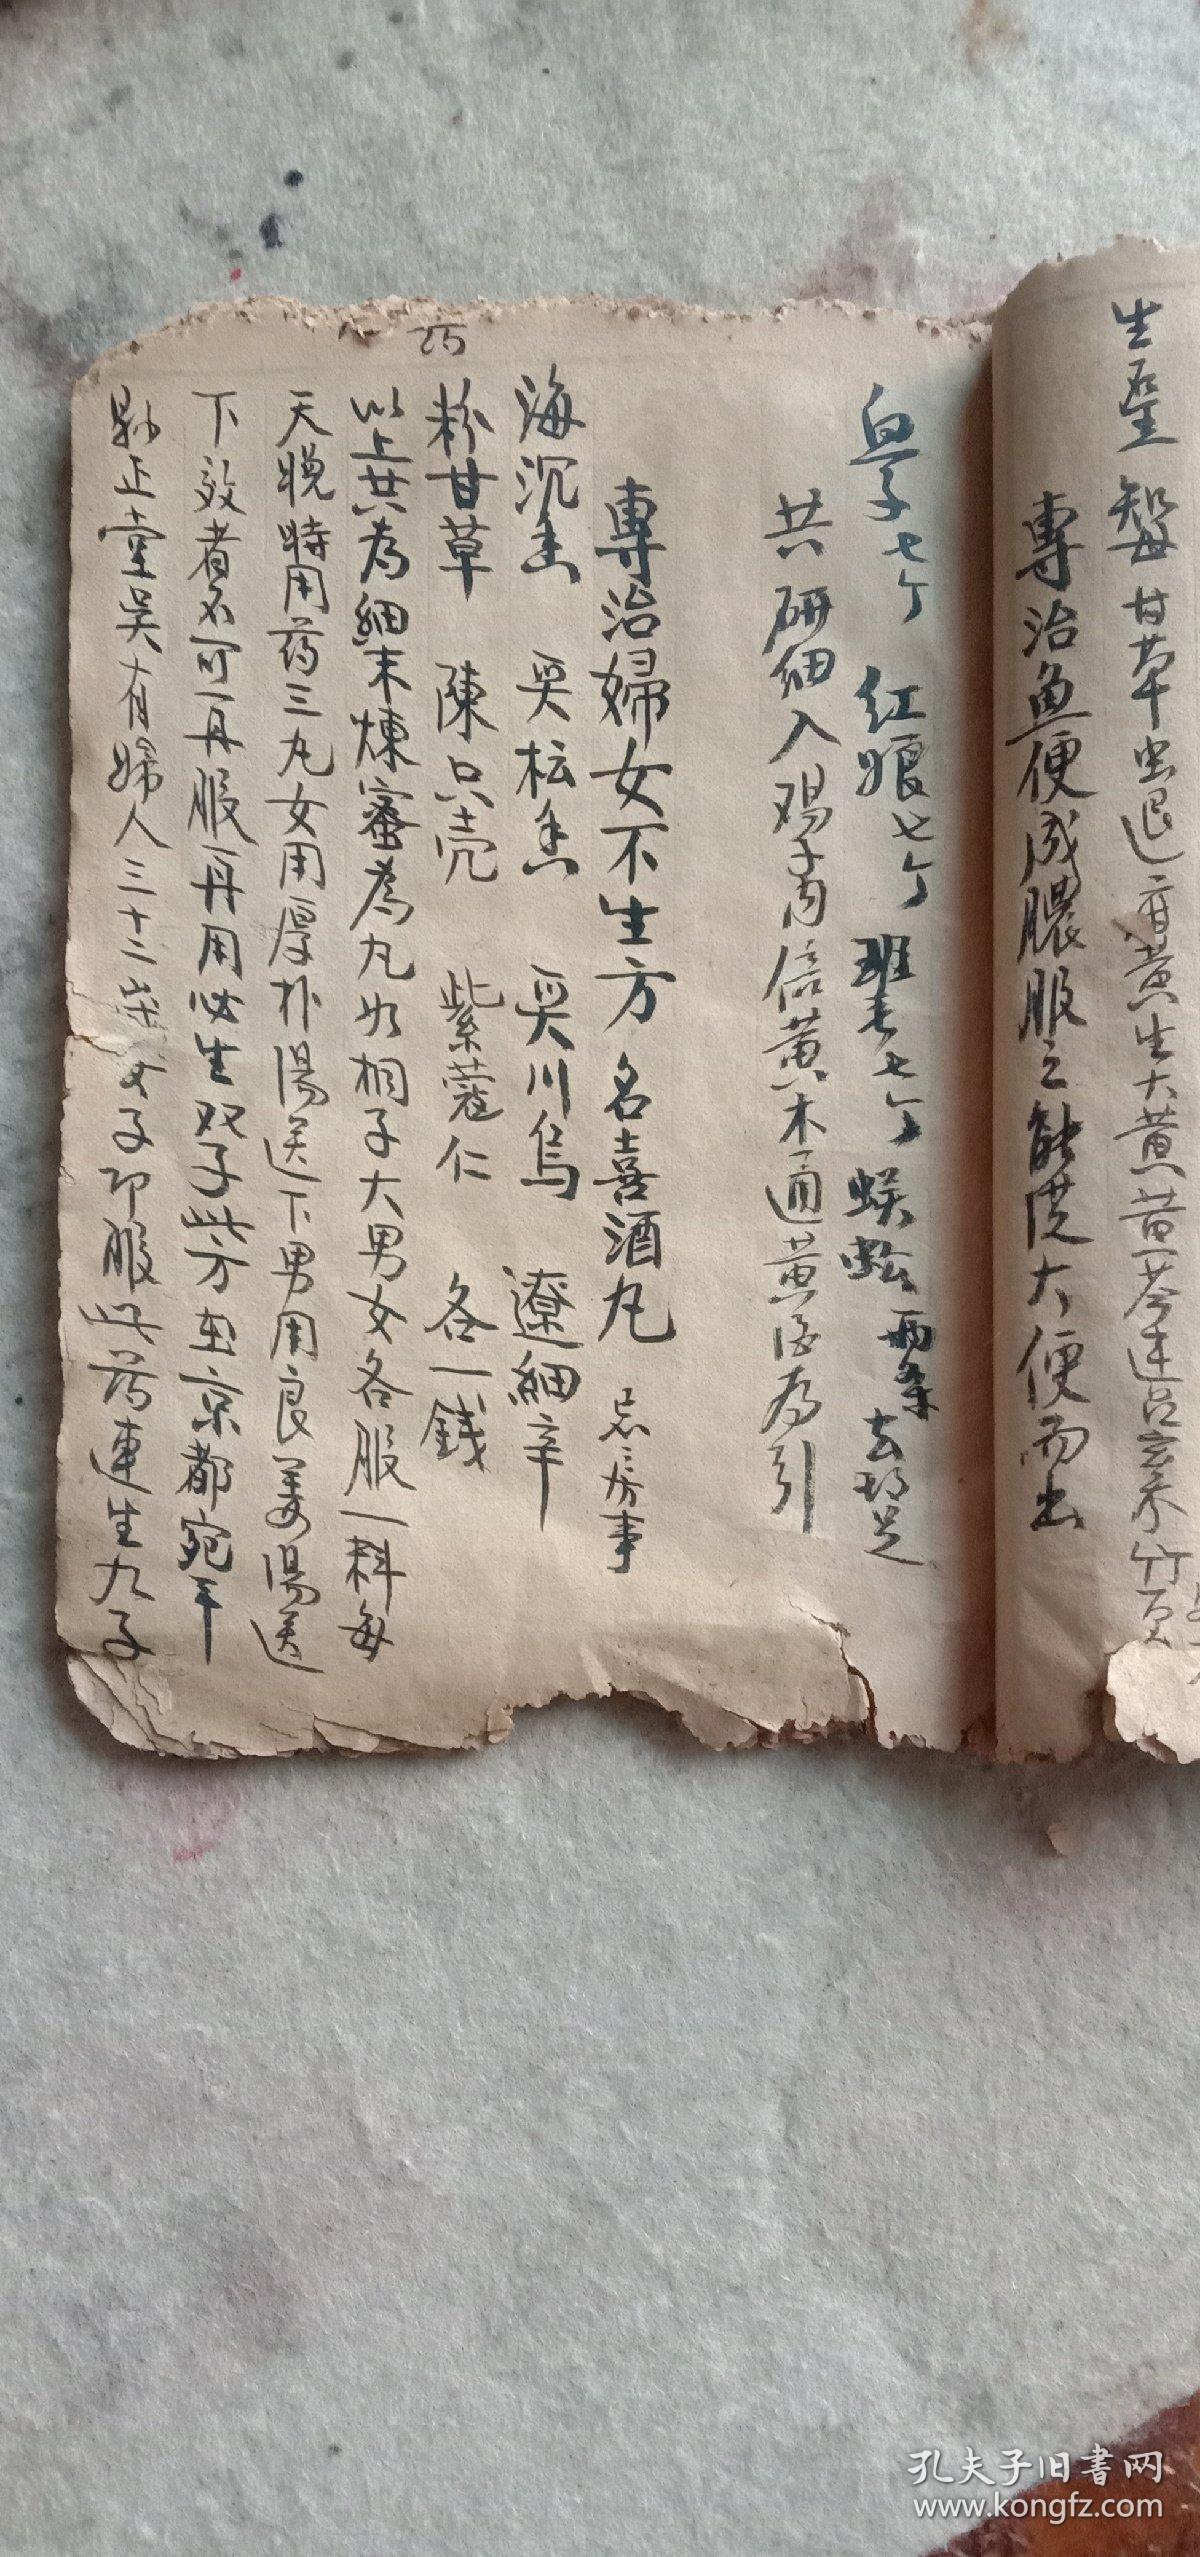 生聖 智母 甘草 虫退 黄 生大黄 黄芩 連召 竹
專治魚便成膿服之能淂大便而出
皇子七个 红娘七个 班毛七个 蜈蚣两条 去足
共研细入鸡子内信黄木通黄酒为引
專治婦女不生方 名喜酒丸 忌房事
海沉香 吳枟香 吳川烏 遼細辛
粉甘草 陳只壳 紫蔻仁 各一錢
以上共為細末煉蜜為丸如桐子大男女各服一料每
天晚時用药三丸女用厚朴湯送下男用良姜湯送
下效者不可再服再用必生双子此方出京都宛平
縣正堂吴有婦人三十二歲女子即服此药連生九子
药
孔夫子旧书网
www.kongfz.com